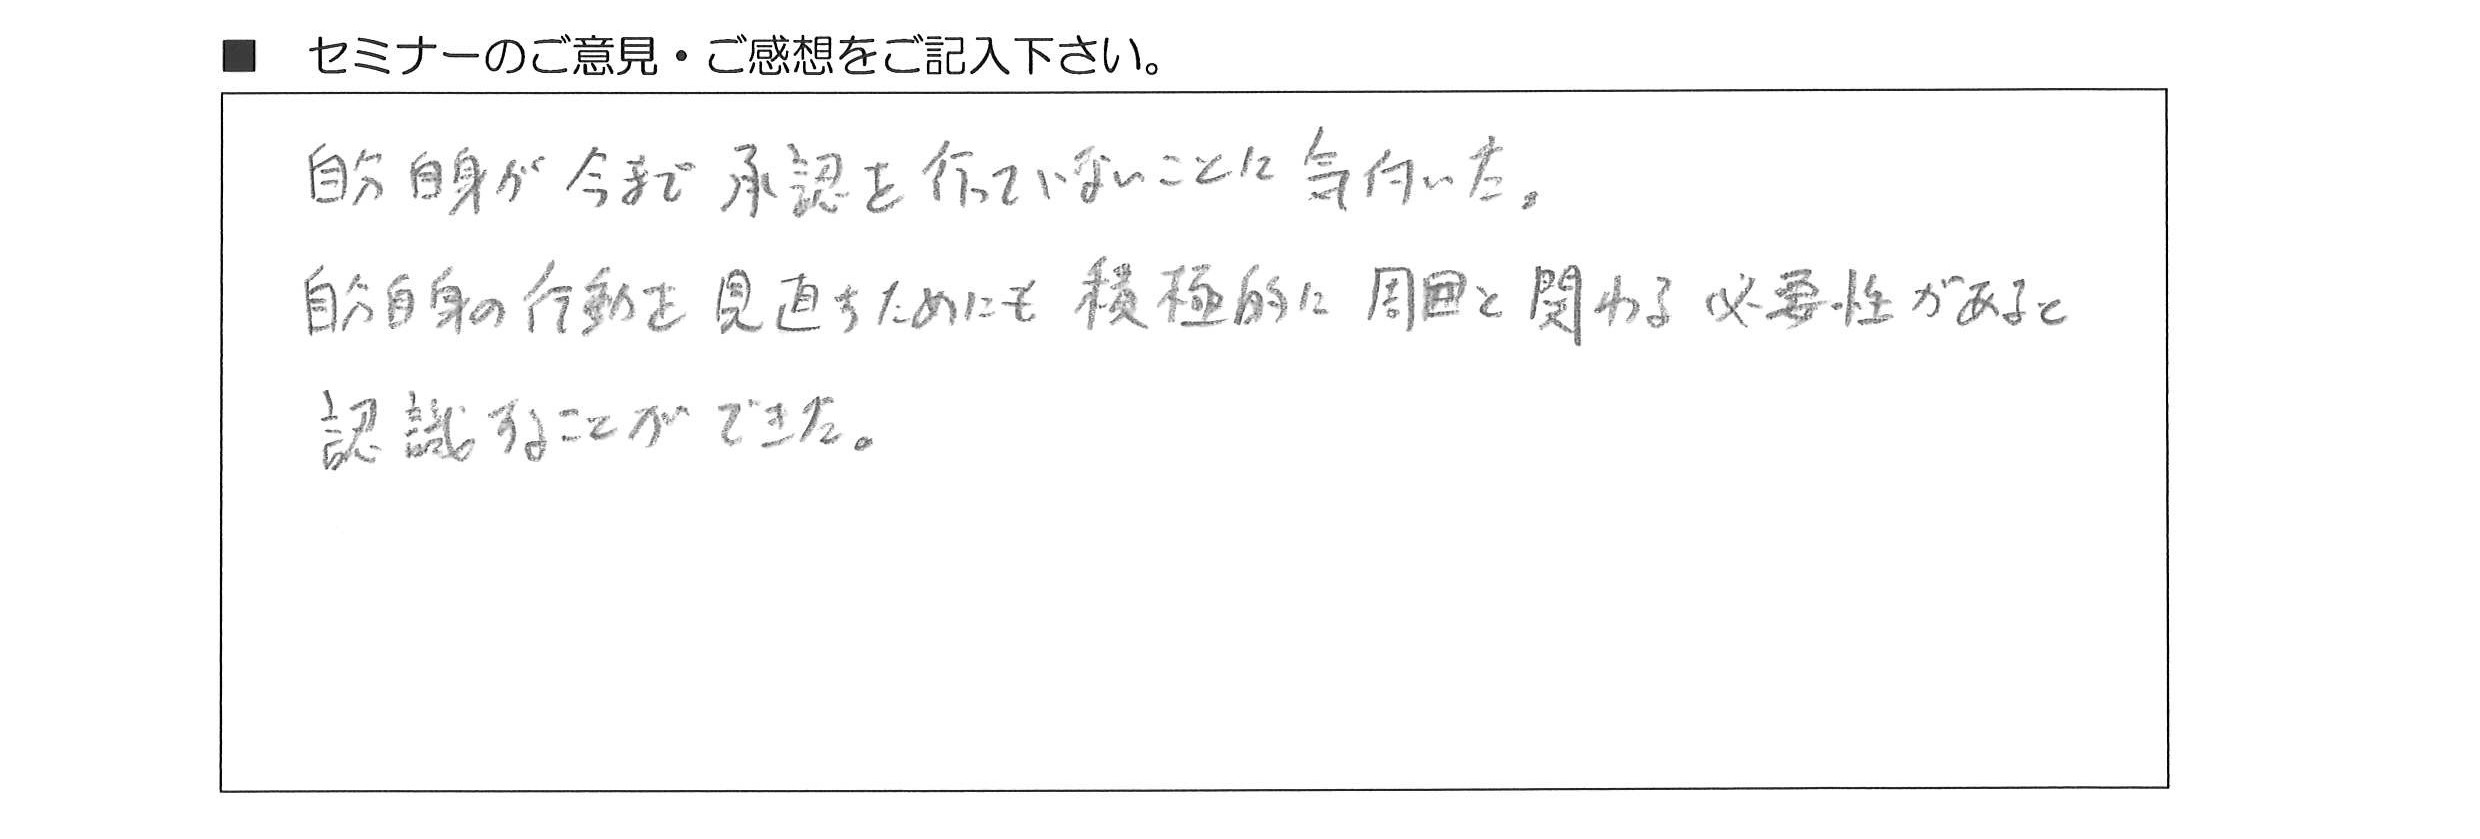 ■ セミナーのご意見・ご感想をご記入下さい。
自分自身が今まで承認を行っていないことに気付いた。
自分自身の行動を見直すためにも積極的に周囲と関わる必要性があると
認識することができた。